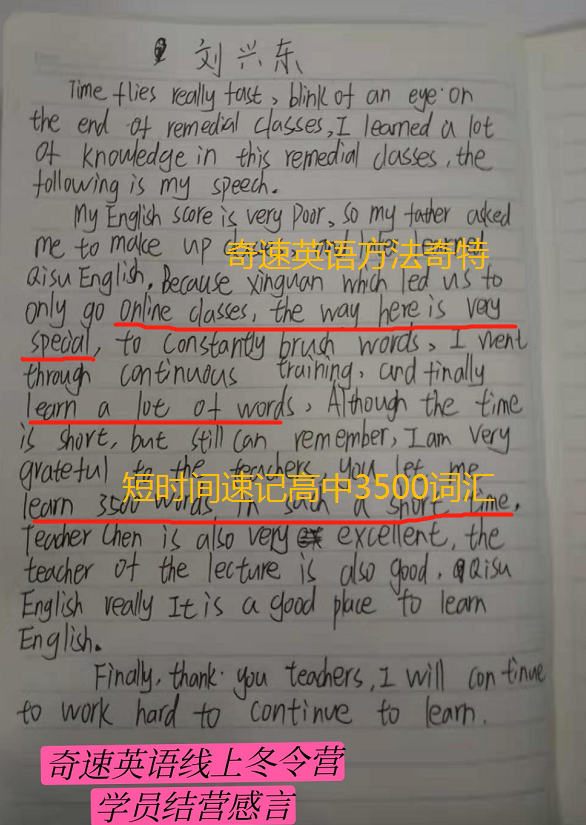 刘兴东
Time flies really fast, blink of an eye. on
the end of remedial classes, I learned a lot
of knowledge in this remedial classes, the
following is my speech.
My English score is very poor, so my father asked
me to make up
奇速英语方法奇特
Qisu English. Because xinguan which led us to
only go online classes, the way here is very
special, to constantly brush words, I went
through continuous training, and finally
learn a lot of words, Although the time
is short, but still can remember, I am very
grateful to the teachers, you let me
短时间速记高中3500词汇
learn 3500 words in such a short time.
Teacher Chen is also very excellent, the
teacher of the lecture is also good. Qisu
English really It is a good place to learn
English.
Finally, thank you teachers, I will continue
to work hard to continue to learn.
奇速英语线上冬令营
学员结营感言